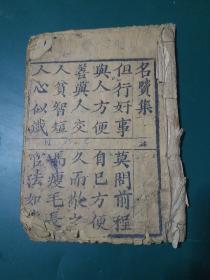 名賢集
但行好事 莫問前程
與人方便 自已方便
善與人交 久而敬之
人貧智短 馬瘦毛長
人心似鐵 官法如